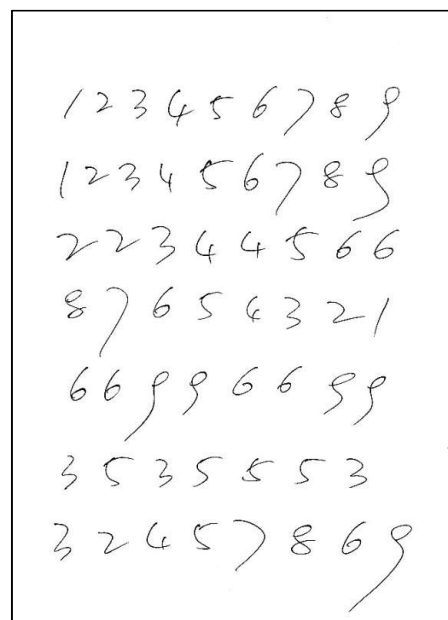 1 2 3 4 5 6 7 8 9
1 2 3 4 5 6 7 8 9
2 2 3 4 4 5 6 6
8 7 6 5 4 3 2 1
6 6 9 9 6 6 9 9
3 5 3 5 5 5 3
3 2 4 5 7 8 6 9